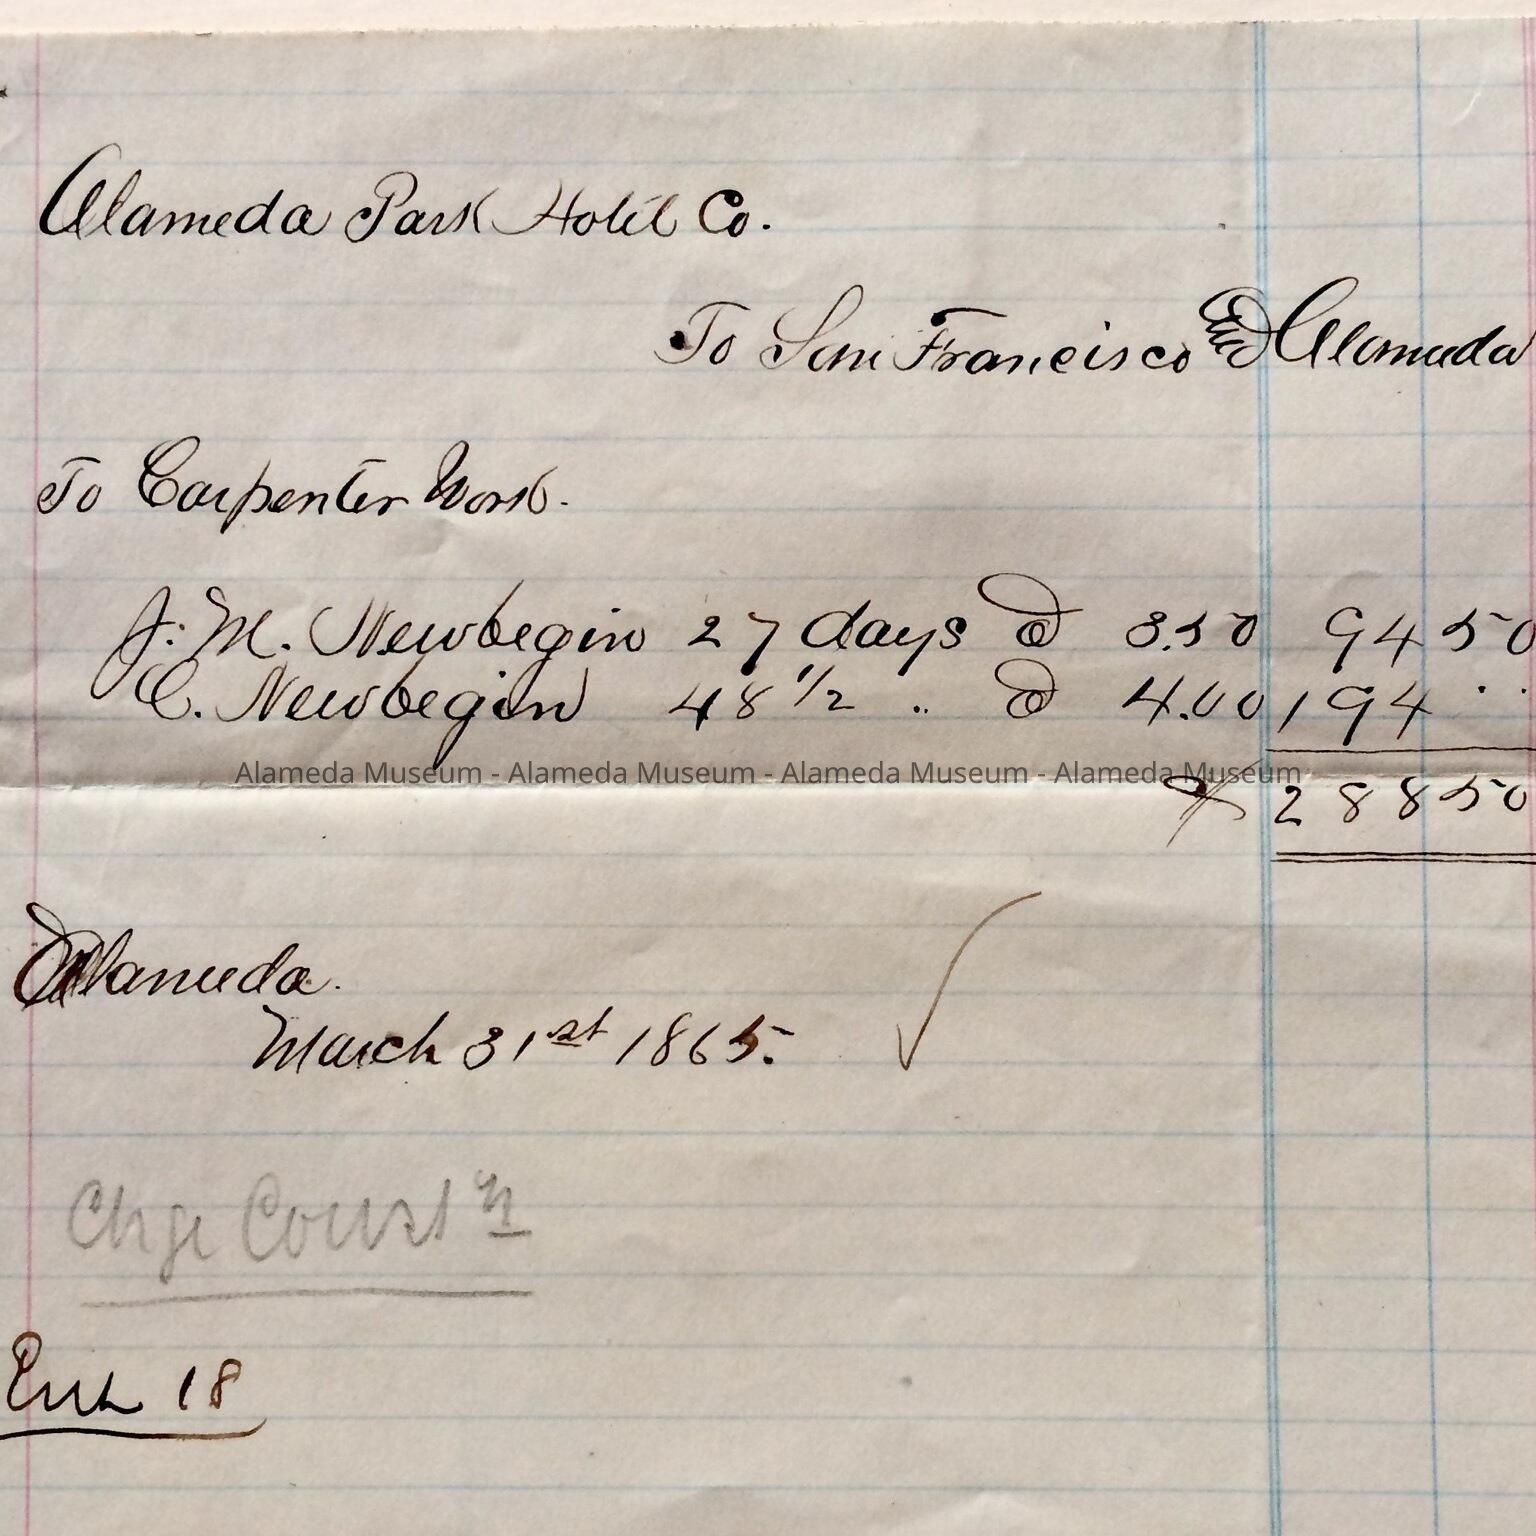 Alameda Park Hotel Co.
To San Francisco and Alameda
To Carpenter Work.
J. M. Newbegin 27 days @ 3.50 94 50
C. Newbegin 48 1/2 " @ 4.00 194 " "
Alameda Museum - Alameda Museum - Alameda Museum - Alameda Museum
$ 288 50
Alameda.
March 31st 1865.
Chge Const n
18